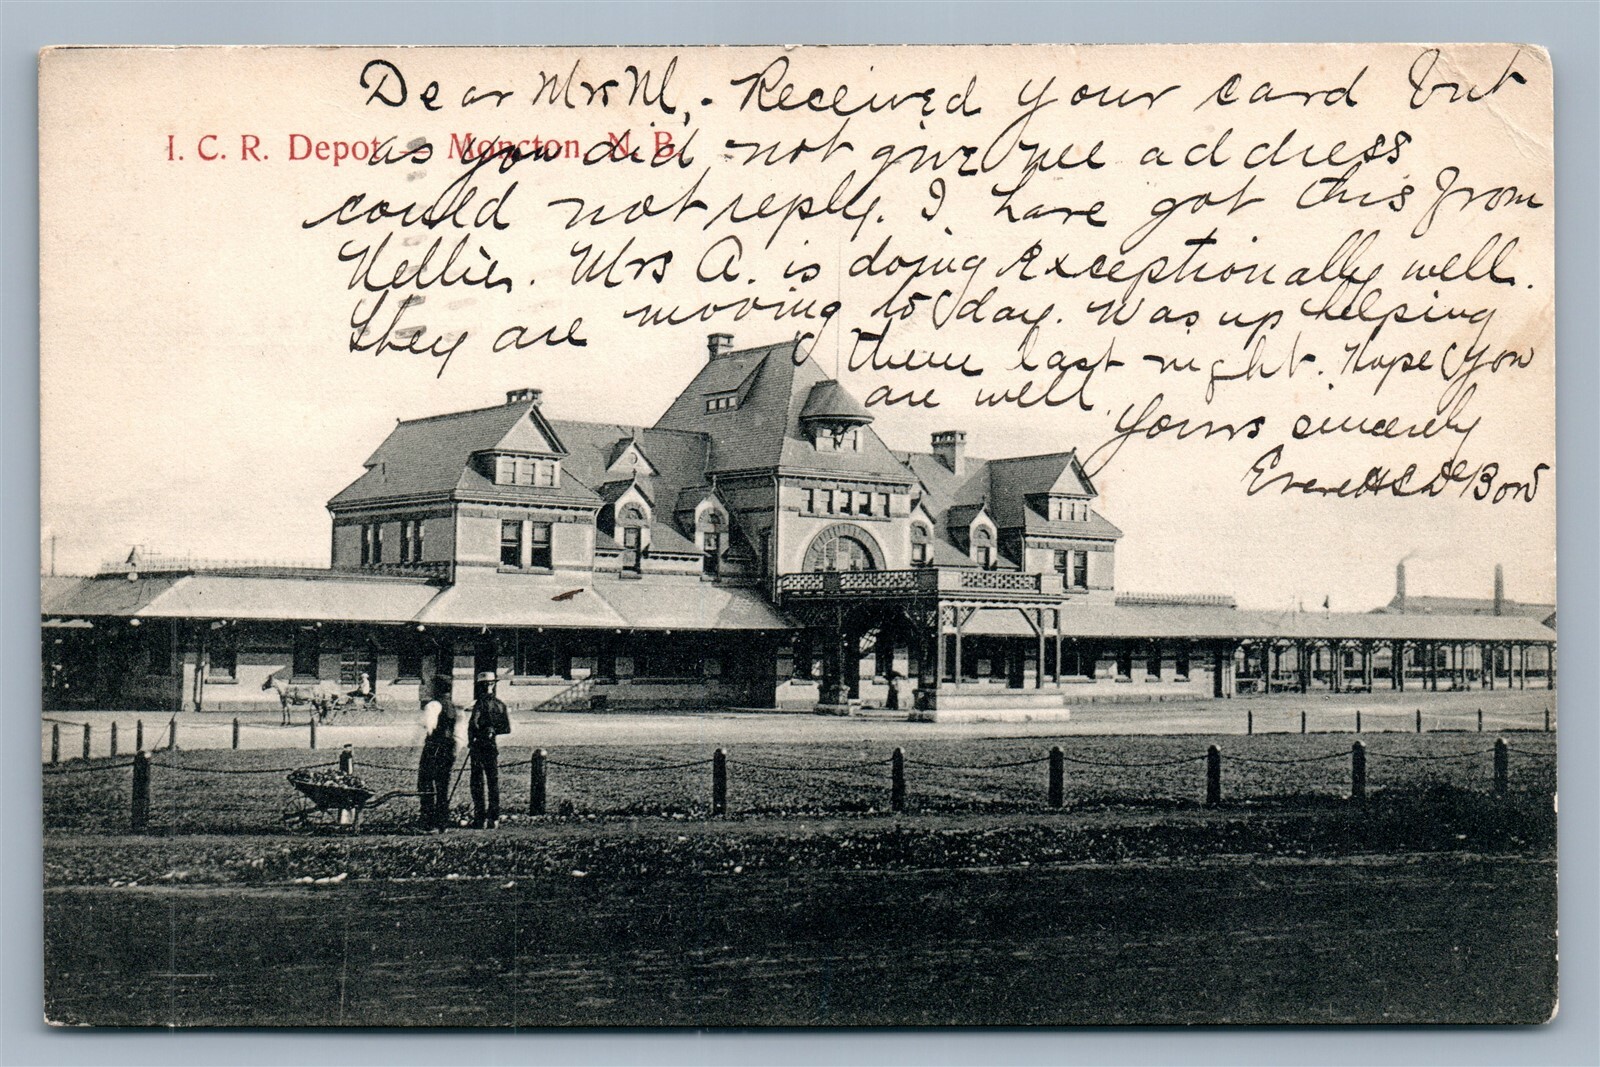 Dear Mrs M. - Received your card but
I. C. R. Depot — Moncton, N. B.
as you did not give me address
could not reply. I have got this from
Nellie. Mrs A. is doing exceptionally well.
They are moving to day. Was up helping
them last night. Hope you
are well.
Yours sincerely
Everett S De Bow